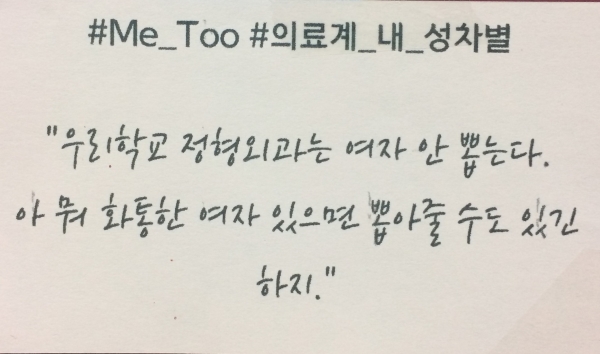 #Me_Too #의료계_내_성차별
"우리학교 정형외과는 여자 안 뽑는다.
아 뭐 화통한 여자 있으면 뽑아줄 수도 있긴
하지."